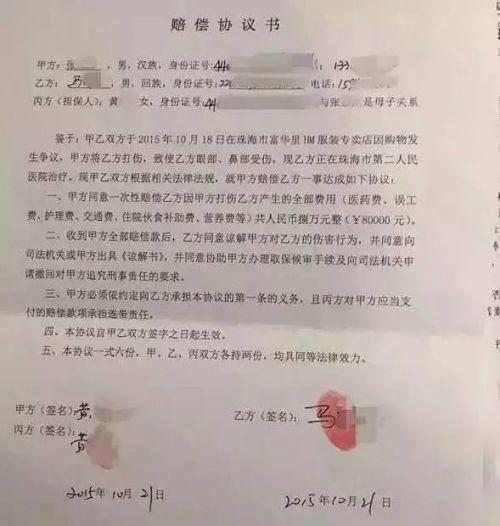 赔偿协议书
甲方：张 ，男，汉族，身份证号：44 ：133
乙方：马 ，男，回族，身份证号：22 电话：15
丙方（担保人）：黄 女，身份证号：44 与张 是母子关系
鉴于：甲乙双方于2015年10月18日在珠海市富华里HM服装专卖店因购物发
生争议，甲方将乙方打伤，致使乙方眼部、鼻部受伤，现乙方正在珠海市第二人民
医院治疗。现甲乙双方根据相关法律法规，就甲方赔偿乙方一事达成如下协议：
一、甲方同意一次性赔偿乙方因甲方打伤乙方产生的全部费用（医药费、误工
费、护理费、交通费、住院伙食补助费、营养费等）共人民币捌万元整（￥80000元）。
二、收到甲方全部赔偿款后，乙方同意谅解甲方对乙方的伤害行为，并同意向
司法机关或甲方出具《谅解书》，并同意协助甲方办理取保候审手续及向司法机关申
请撤回对甲方追究刑事责任的要求。
三、甲方必须依约定向乙方承担本协议的第一条的义务，且丙方对甲方应当支
付的赔偿款项承担连带责任。
四、本协议自甲乙双方签字之日起生效。
五、本协议一式六份，甲、乙、丙双方各持两份，均具同等法律效力。
甲方（签名）：黄
乙方（签名）：马
丙方（签名）：黄
2015年10月21日
2015年10月21日